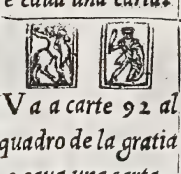 e caua una carta.
Va a carte 92 al
quadro de la gratia
e caua una carta